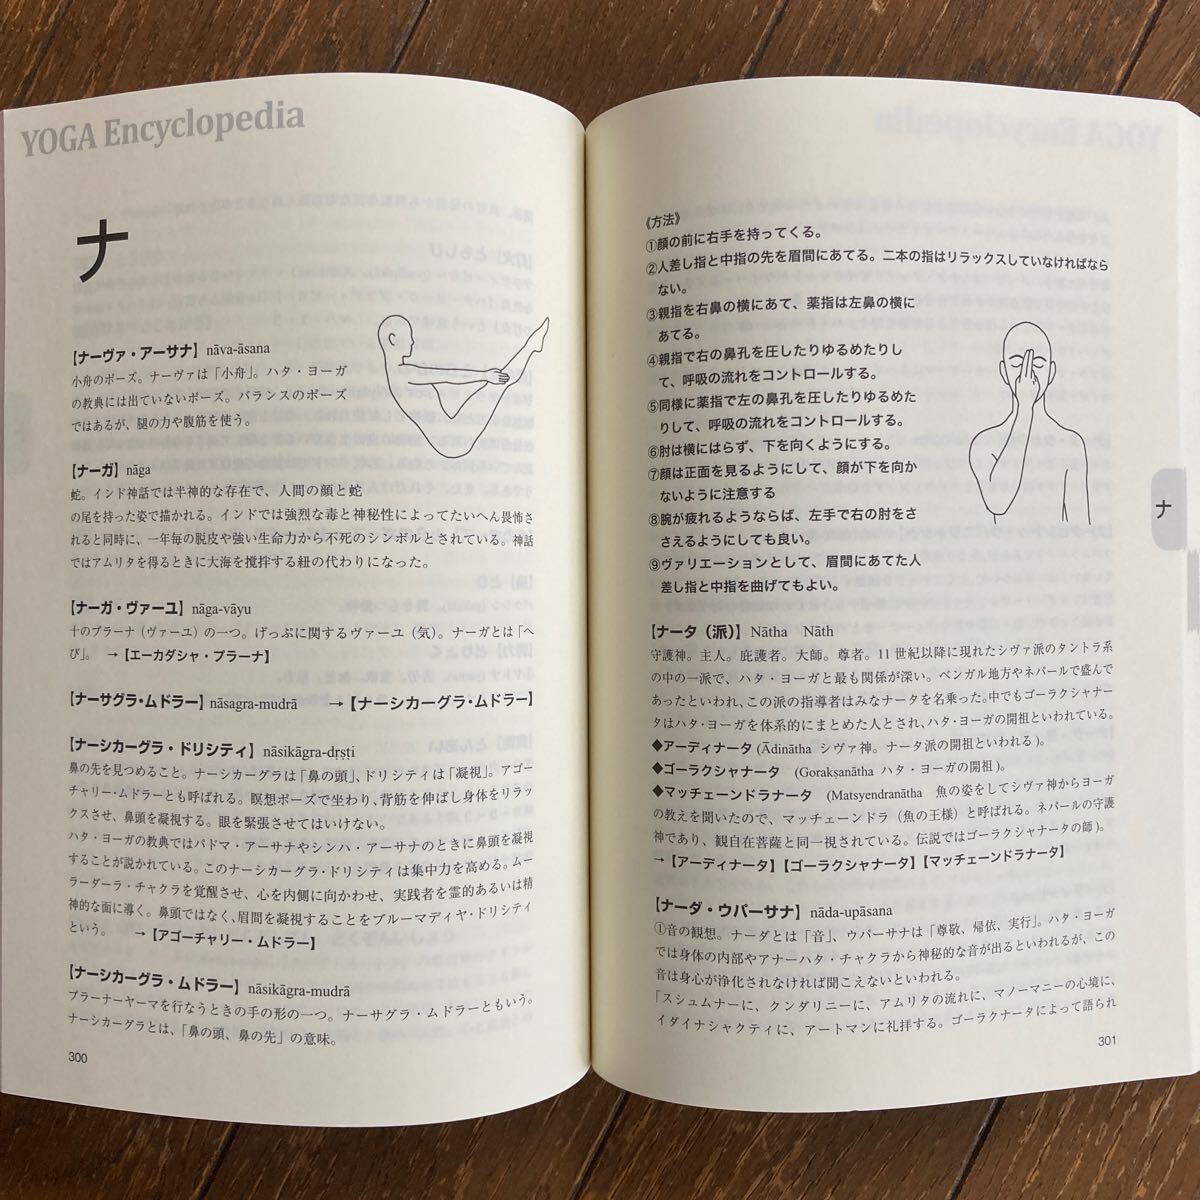 YOGA Encyclopedia
ナ
【ナーヴァ・アーサナ】 nāva-āsana
小舟のポーズ。ナーヴァは「小舟」。ハタ・ヨーガ
の教典には出ていないポーズ。バランスのポーズ
ではあるが、腿の力や腹筋を使う。
【ナーガ】 nāga
蛇。インド神話では半神的な存在で、人間の顔と蛇
の尾を持った姿で描かれる。インドでは強烈な毒と神秘性によってたいへん畏怖さ
れると同時に、一年毎の脱皮や強い生命力から不死のシンボルとされている。神話
ではアムリタを得るときに大海を攪拌する紐の代わりになった。
【ナーガ・ヴァーユ】 nāga-vāyu
十のプラーナ（ヴァーユ）の一つ。げっぷに関するヴァーユ（気）。ナーガとは「へ
び」。 →【エーカダシャ・プラーナ】
【ナーサグラ・ムドラー】 nāsagra-mudrā →【ナーシカーグラ・ムドラー】
【ナーシカーグラ・ドリシティ】 nāsikāgra-dṛṣṭi
鼻の先を見つめること。ナーシカーグラは「鼻の頭」、ドリシティは「凝視」。アゴー
チャリー・ムドラーとも呼ばれる。瞑想ポーズで坐わり、背筋を伸ばし身体をリラッ
クスさせ、鼻頭を凝視する。眼を緊張させてはいけない。
ハタ・ヨーガの教典ではパドマ・アーサナやシンハ・アーサナのときに鼻頭を凝視
することが説かれている。このナーシカーグラ・ドリシティは集中力を高める。ムー
ラーダーラ・チャクラを覚醒させ、心を内側に向かわせ、実践者を霊的あるいは精
神的な面に導く。鼻頭ではなく、眉間を凝視することをブルーマディヤ・ドリシティ
という。 →【アゴーチャリー・ムドラー】
【ナーシカーグラ・ムドラー】 nāsikāgra-mudrā
プラーナーヤーマを行なうときの手の形の一つ。ナーサグラ・ムドラーともいう。
ナーシカーグラとは、「鼻の頭、鼻の先」の意味。
300
《方法》
①顔の前に右手を持ってくる。
②人差し指と中指の先を眉間にあてる。二本の指はリラックスしていなければなら
ない。
③親指を右鼻の横にあて、薬指は左鼻の横に
あてる。
④親指で右の鼻孔を圧したりゆるめたりし
て、呼吸の流れをコントロールする。
⑤同様に薬指で左の鼻孔を圧したりゆるめた
りして、呼吸の流れをコントロールする。
⑥肘は横にはらず、下を向くようにする。
⑦顔は正面を見るようにして、顔が下を向か
ないように注意する
⑧腕が疲れるようならば、左手で右の肘をさ
さえるようにしても良い。
⑨ヴァリエーションとして、眉間にあてた人
差し指と中指を曲げてもよい。
ナ
【ナータ（派）】 Nātha Nāth
守護神。主人。庇護者。大師。尊者。11世紀以降に現れたシヴァ派のタントラ系
の中の一派で、ハタ・ヨーガと最も関係が深い。ベンガル地方やネパールで盛んで
あったといわれ、この派の指導者はみなナータを名乗った。中でもゴーラクシャナー
タはハタ・ヨーガを体系的にまとめた人とされ、ハタ・ヨーガの開祖といわれている。
◆アーディナータ (Ādinātha シヴァ神。ナータ派の開祖といわれる)。
◆ゴーラクシャナータ (Gorakṣanātha ハタ・ヨーガの開祖)。
◆マッチェーンドラナータ (Matsyendranātha 魚の姿をしてシヴァ神からヨーガ
の教えを聞いたので、マッチェーンドラ（魚の王様）と呼ばれる。ネパールの守護
神であり、観自在菩薩と同一視されている。伝説ではゴーラクシャナータの師)。
→【アーディナータ】【ゴーラクシャナータ】【マッチェーンドラナータ】
【ナーダ・ウパーサナ】 nāda-upāsana
①音の観想。ナーダとは「音」、ウパーサナは「尊敬、帰依、実行」。ハタ・ヨーガ
では身体の内部やアナーハタ・チャクラから神秘的な音が出るといわれるが、この
音は身心が浄化されなければ聞こえないといわれる。
「スシュムナーに、クンダリニーに、アムリタの流れに、マノーマニーの心境に、
イダイナシャクティに、アートマンに礼拝する。ゴーラクナータによって語られ
301